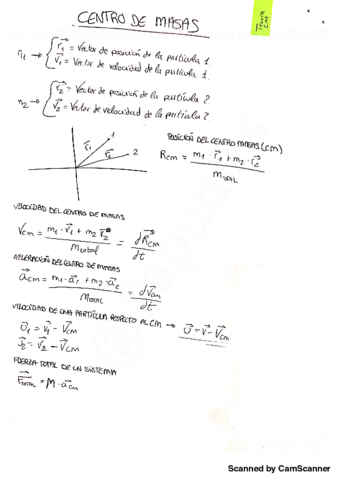 CENTRO DE MASAS
Teoría CM
m₁ → { r⃗₁ = Vector de posición de la partícula 1.
v⃗₁ = Vector de velocidad de la partícula 1.
m₂ → { r⃗₂ = Vector de posición de la partícula 2.
v⃗₂ = Vector de velocidad de la partícula 2.
r⃗₁ 1
r⃗₂ 2
POSICIÓN DEL CENTRO MASAS (cm)
Rcm = (m₁ · r⃗₁ + m₂ · r⃗₂) / Mtotal
VELOCIDAD DEL CENTRO DE MASAS
Vcm = (m₁ · v⃗₁ + m₂ v⃗₂) / Mtotal = dR⃗cm / dt
ACELERACIÓN DEL CENTRO DE MASAS
a⃗cm = (m₁ · a⃗₁ + m₂ · a⃗₂) / Mtotal = dv⃗cm / dt
VELOCIDAD DE UNA PARTÍCULA RESPECTO AL CM → U⃗ = V⃗ - V⃗cm
U⃗₁ = V⃗₁ - V⃗cm
= V⃗₂ - V⃗cm
FUERZA TOTAL DE UN SISTEMA
F⃗total = M · a⃗cm
Scanned by CamScanner